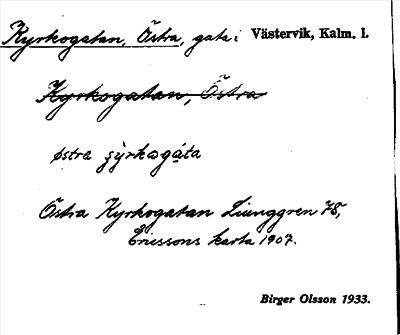 Kyrkogatan, Östra, gata i Västervik, Kalm. l.
Kyrkogatan, Östra
østra çyrkogáta
Östra Kyrkogatan Ljunggren 78,
Ericssons karta 1907.
Birger Olsson 1933.